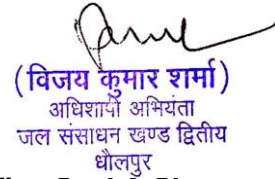 (विजय कुमार शर्मा)
अधिशाषी अभियंता
जल संसाधन खण्ड द्वितीय
धौलपुर